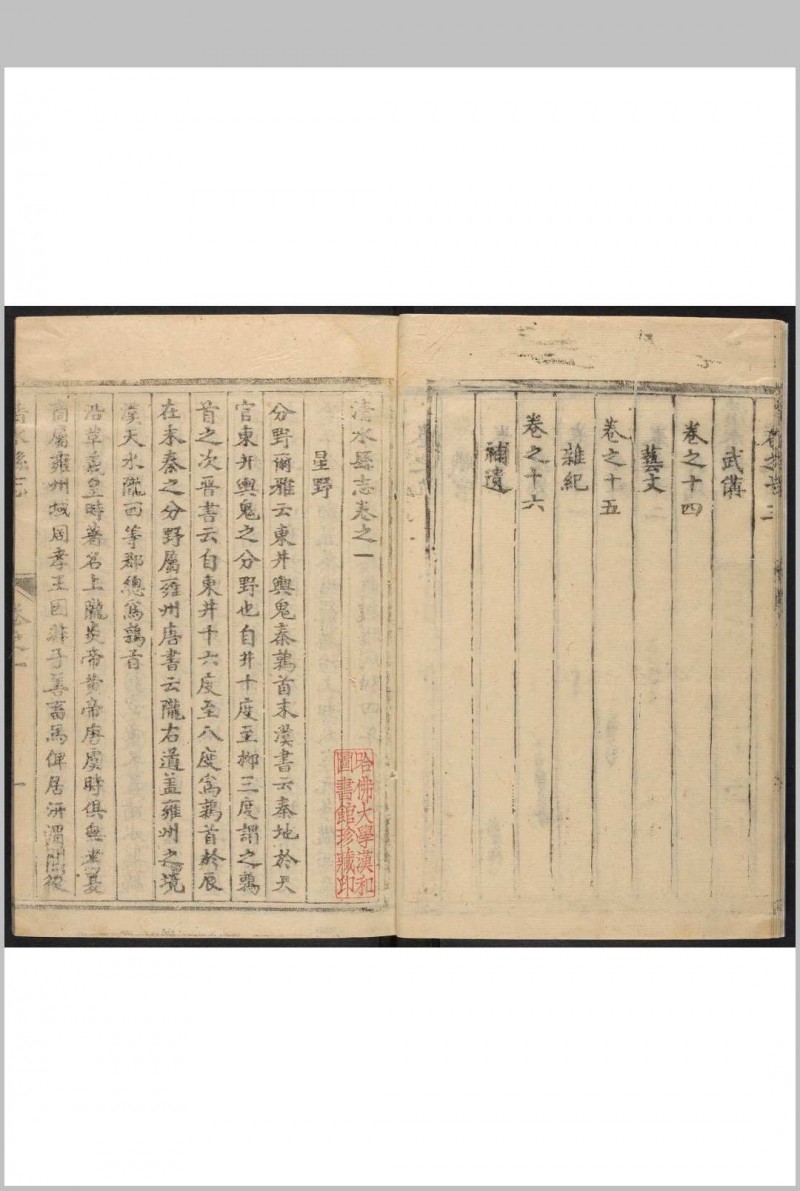 武備
卷之十四
藝文
卷之十五
雜紀
卷之十六
補遺
清水縣志卷之一
星野
分野爾雅云東井輿鬼秦鶉首末漢書云秦地於天
官東井輿鬼之分野也自井十度至柳三度謂之鶉
首之次晉書云自東井十六度至八度爲鶉首於辰
在未秦之分野屬雍州唐書云隴右道蓋雍州之境
漢天水隴西等郡總爲鶉首
沿革羲皇時著名上隴炎帝黄帝唐虞時俱無考夏
商屬雍州域周孝王因非子善畜馬俾居汧渭間後
清水縣志
卷之一
一
哈佛大學漢和
圖書館珍藏印